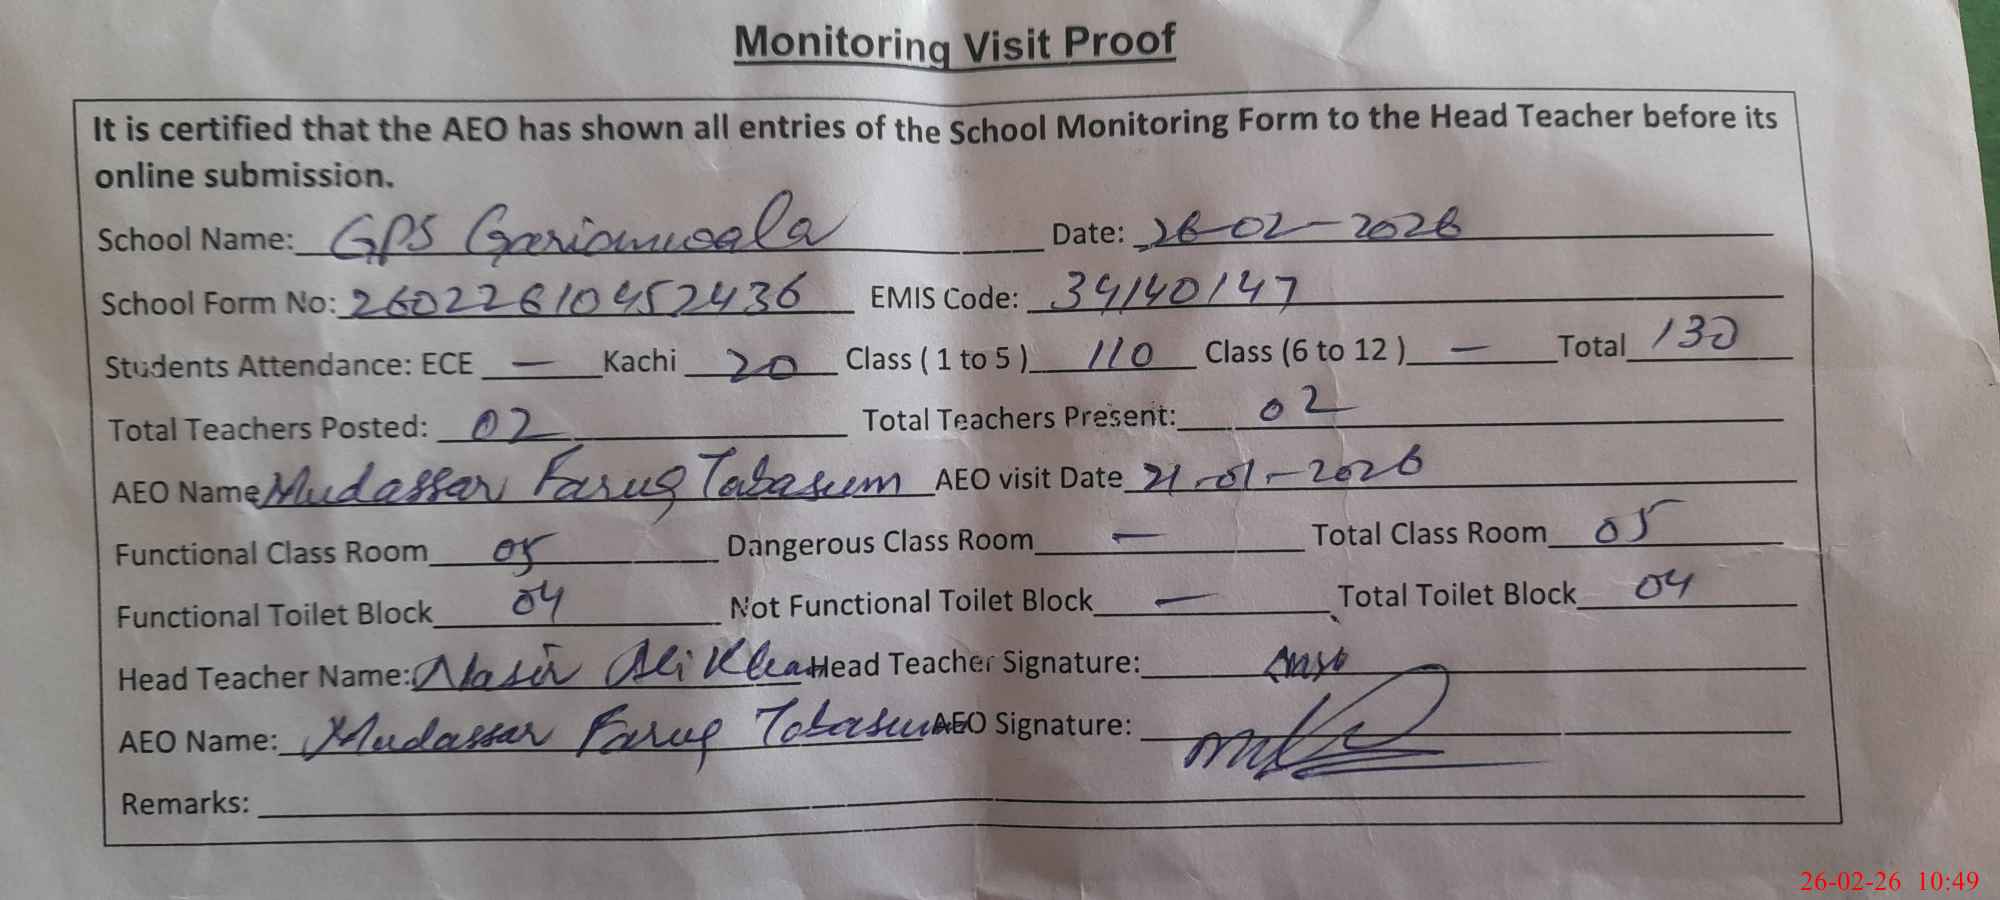 Monitoring Visit Proof
It is certified that the AEO has shown all entries of the School Monitoring Form to the Head Teacher before its
online submission.
School Name: GPS Gariamwala Date: 26-02-2026
School Form No: 26022610452436 EMIS Code: 34140147
Students Attendance: ECE — Kachi 20 Class ( 1 to 5 ) 110 Class (6 to 12 ) — Total 130
Total Teachers Posted: 02 Total Teachers Present: 02
AEO Name Mudassar Faruq Tabasum AEO visit Date 21-01-2026
Functional Class Room 05 Dangerous Class Room — Total Class Room 05
Functional Toilet Block 04 Not Functional Toilet Block — Total Toilet Block 04
Head Teacher Name: Nasir Ali Khan Head Teacher Signature:
AEO Name: Mudassar Faruq Tabasum AEO Signature:
Remarks:
26-02-26 10:49